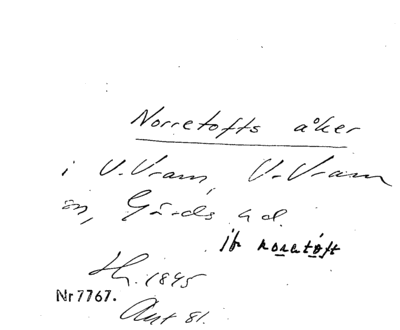 Norretofts åker
i V. Vram, V. Vram
sn, Gärds hd.
jfr norretoft
1845
Nr 7767.
Ant 81.